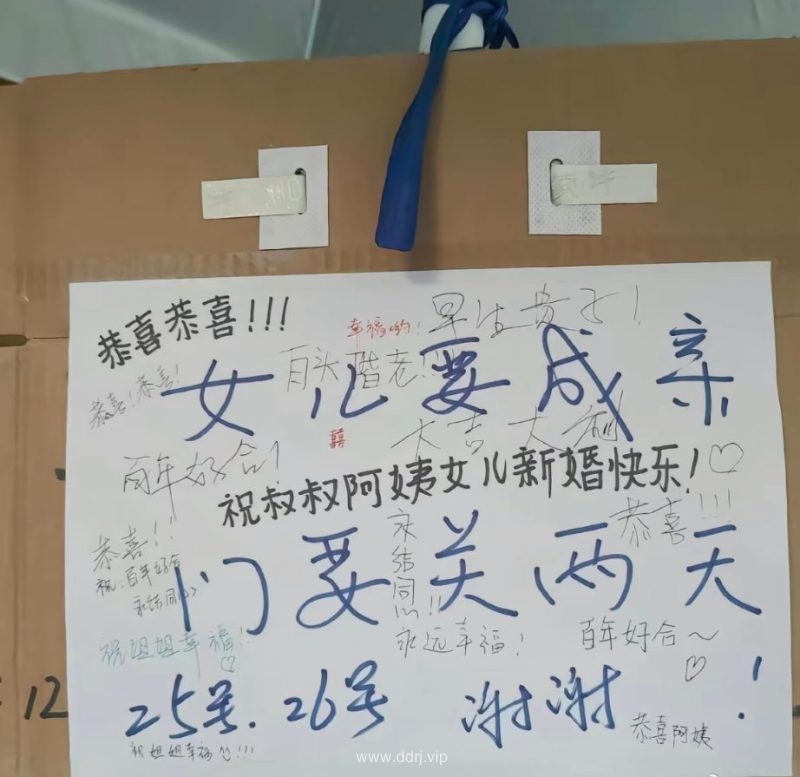 恭喜恭喜!!!
幸福哟!
早生贵子!
恭喜!恭喜!
白头偕老!
女儿要成亲
囍
大吉大利
百年好合!
祝叔叔阿姨女儿新婚快乐!♡
恭喜!!
祝:百年好合
永结同心
永结同心!!
恭喜!!!
门要关两天
祝姐姐幸福!♡
永远幸福!
百年好合~
♡
12
25号.26号 谢谢!
祝姐姐幸福!!!
恭喜阿姨
www.ddrj.vip